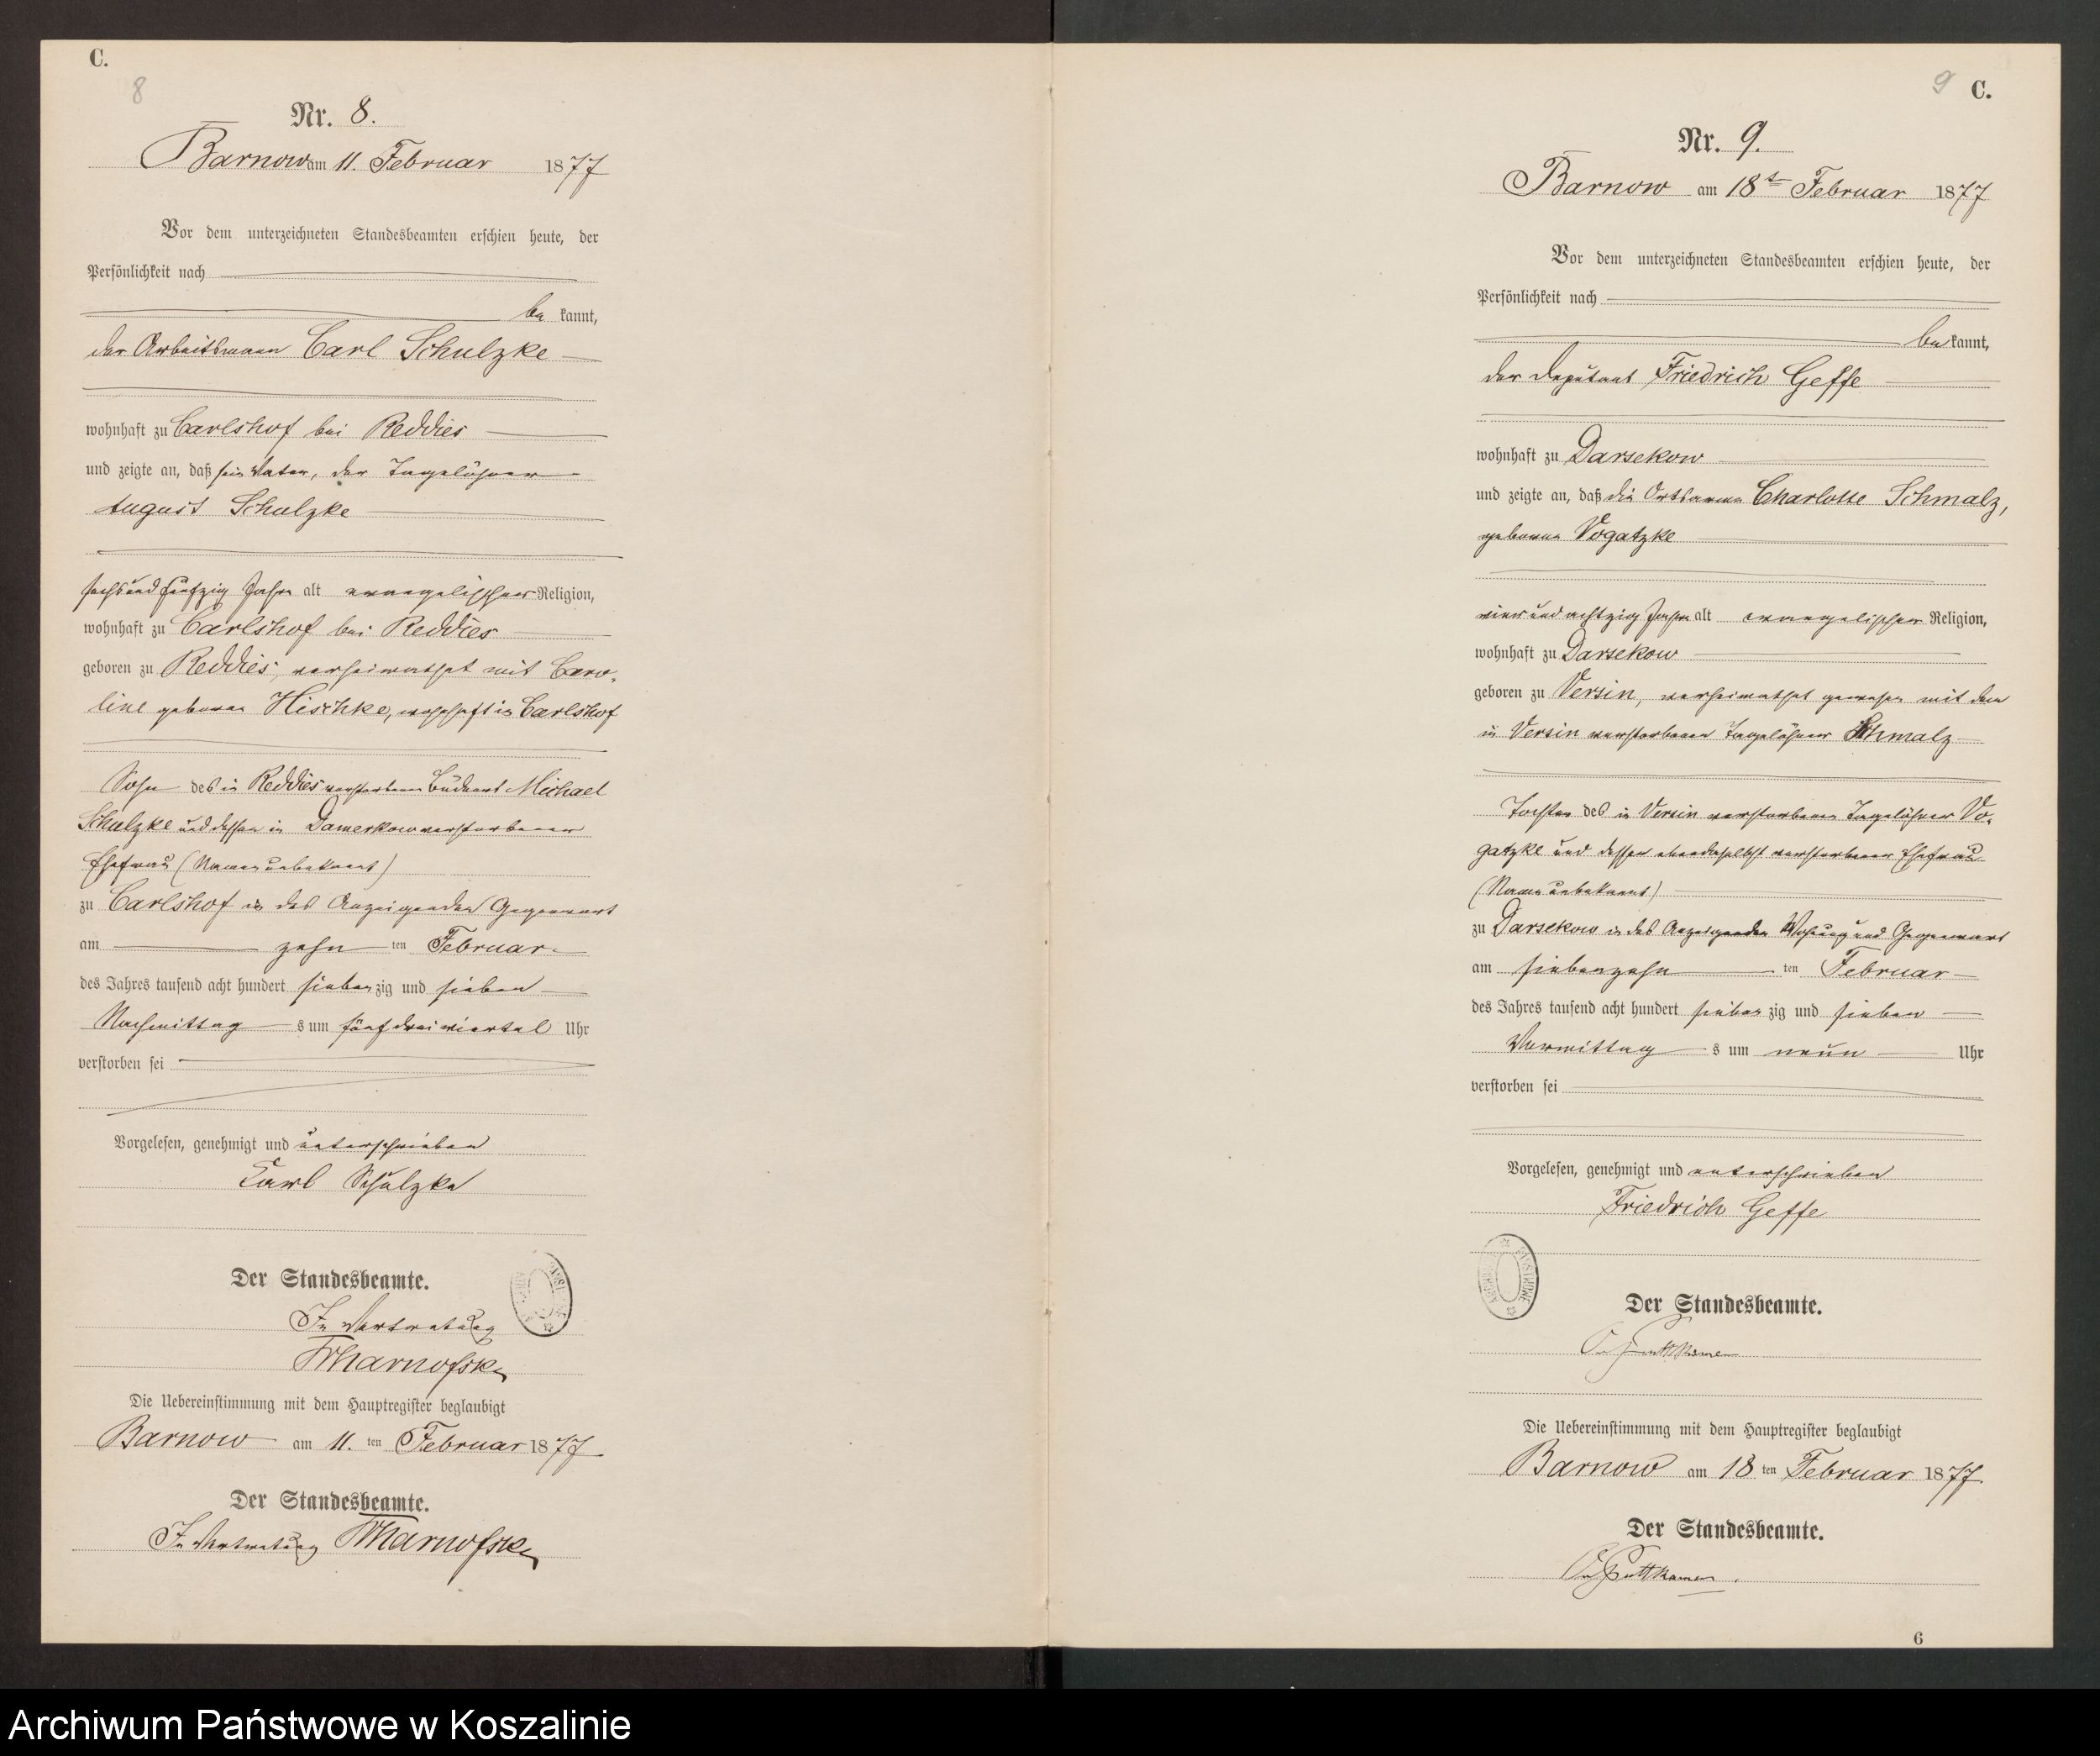 C.
8
Nr. 8.
Barnow am 11. Februar 1877
Vor dem unterzeichneten Standesbeamten erschien heute, der
Persönlichkeit nach
bekannt,
der Arbeitsmann Carl Schulzke
wohnhaft zu Carlshof bei Reddies
und zeigte an, daß sein Vater, der Tagelöhner
August Schulzke
sechsundfünfzig Jahre alt evangelischer Religion,
wohnhaft zu Carlshof bei Reddies
geboren zu Reddies, verheirathet mit Caro-
line geborne Hischke, wohnhaft in Carlshof
Sohn des in Reddies verstorbenen Büdners Michael
Schulzke und dessen in Damerkow verstorbener
Ehefrau (Namen unbekannt)
zu Carlshof in des Anzeigenden Gegenwart
am zehnten Februar
des Jahres tausend acht hundert siebenzig und sieben
Nachmittags um fünf dreiviertel Uhr
verstorben sei
Vorgelesen, genehmigt und unterschrieben
Carl Schulzke
Der Standesbeamte.
In Vertretung
Die Uebereinstimmung mit dem Hauptregister beglaubigt
Barnow am 11. ten Februar 1877
Der Standesbeamte.
In Vertretung
9 C.
Nr. 9.
Barnow am 18t Februar 1877
Vor dem unterzeichneten Standesbeamten erschien heute, der
Persönlichkeit nach
bekannt,
der Deputant Friedrich Geffe
wohnhaft zu Darsekow
und zeigte an, daß die Ortsarme Charlotte Schmalz,
geborne Vogatzke
vierundachtzig Jahre alt evangelischer Religion,
wohnhaft zu Darsekow
geboren zu Versin, verheirathet gewesen mit dem
in Versin verstorbenen Tagelöhner Schmalz
Tochter des in Versin verstorbenen Tagelöhner Vo-
gatzke und dessen ebendaselbst verstorbener Ehefrau
(Name unbekannt)
zu Darsekow in des Anzeigenden Wohnung und Gegenwart
am siebenzehnten Februar
des Jahres tausend acht hundert siebenzig und sieben
Vormittags um neun Uhr
verstorben sei
Vorgelesen, genehmigt und unterschrieben
Friedrich Geffe
Der Standesbeamte.
Puttkamer
Die Uebereinstimmung mit dem Hauptregister beglaubigt
Barnow am 18 ten Februar 1877
Der Standesbeamte.
Puttkamer
6
Archiwum Państwowe w Koszalinie